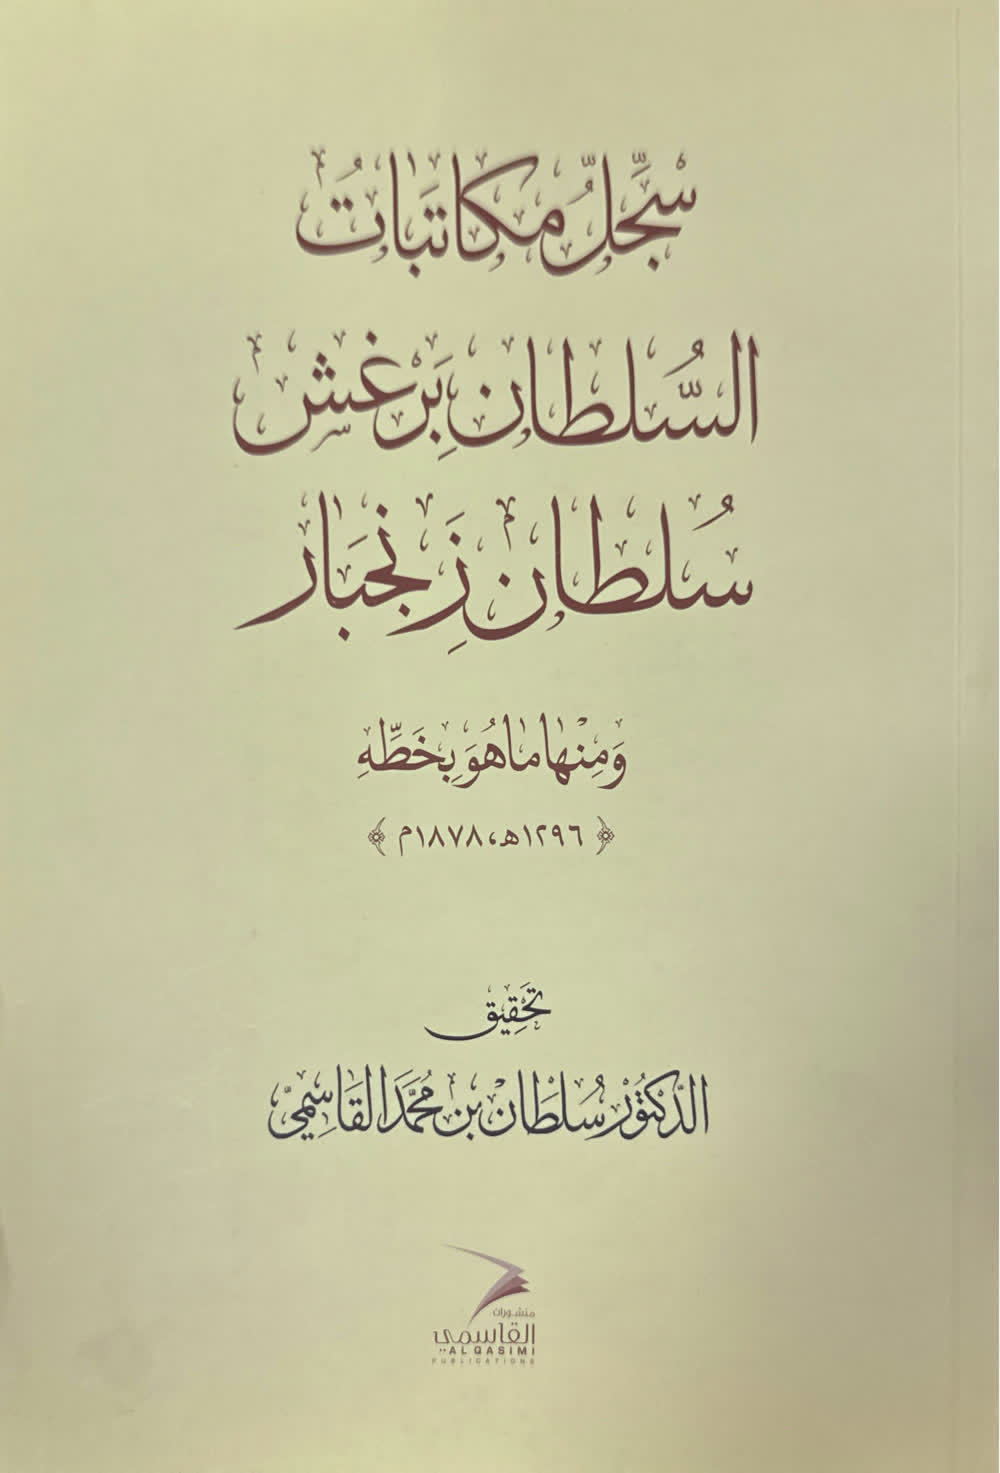 سِجِلُّ مكاتَباتُ
السُّلطان بَرِغش
سُلطان زَنِجبَار
وَمِنْها ما هُوَ بِخَطِّهِ
﴿ ١٢٩٦هـ، ١٨٧٨م ﴾
تَحقِيق
الدّكتُور سُلطَان بن مُحَمَّد القَاسِميّ
منشورات
القاسمي
AL QASIMI
PUBLICATIONS